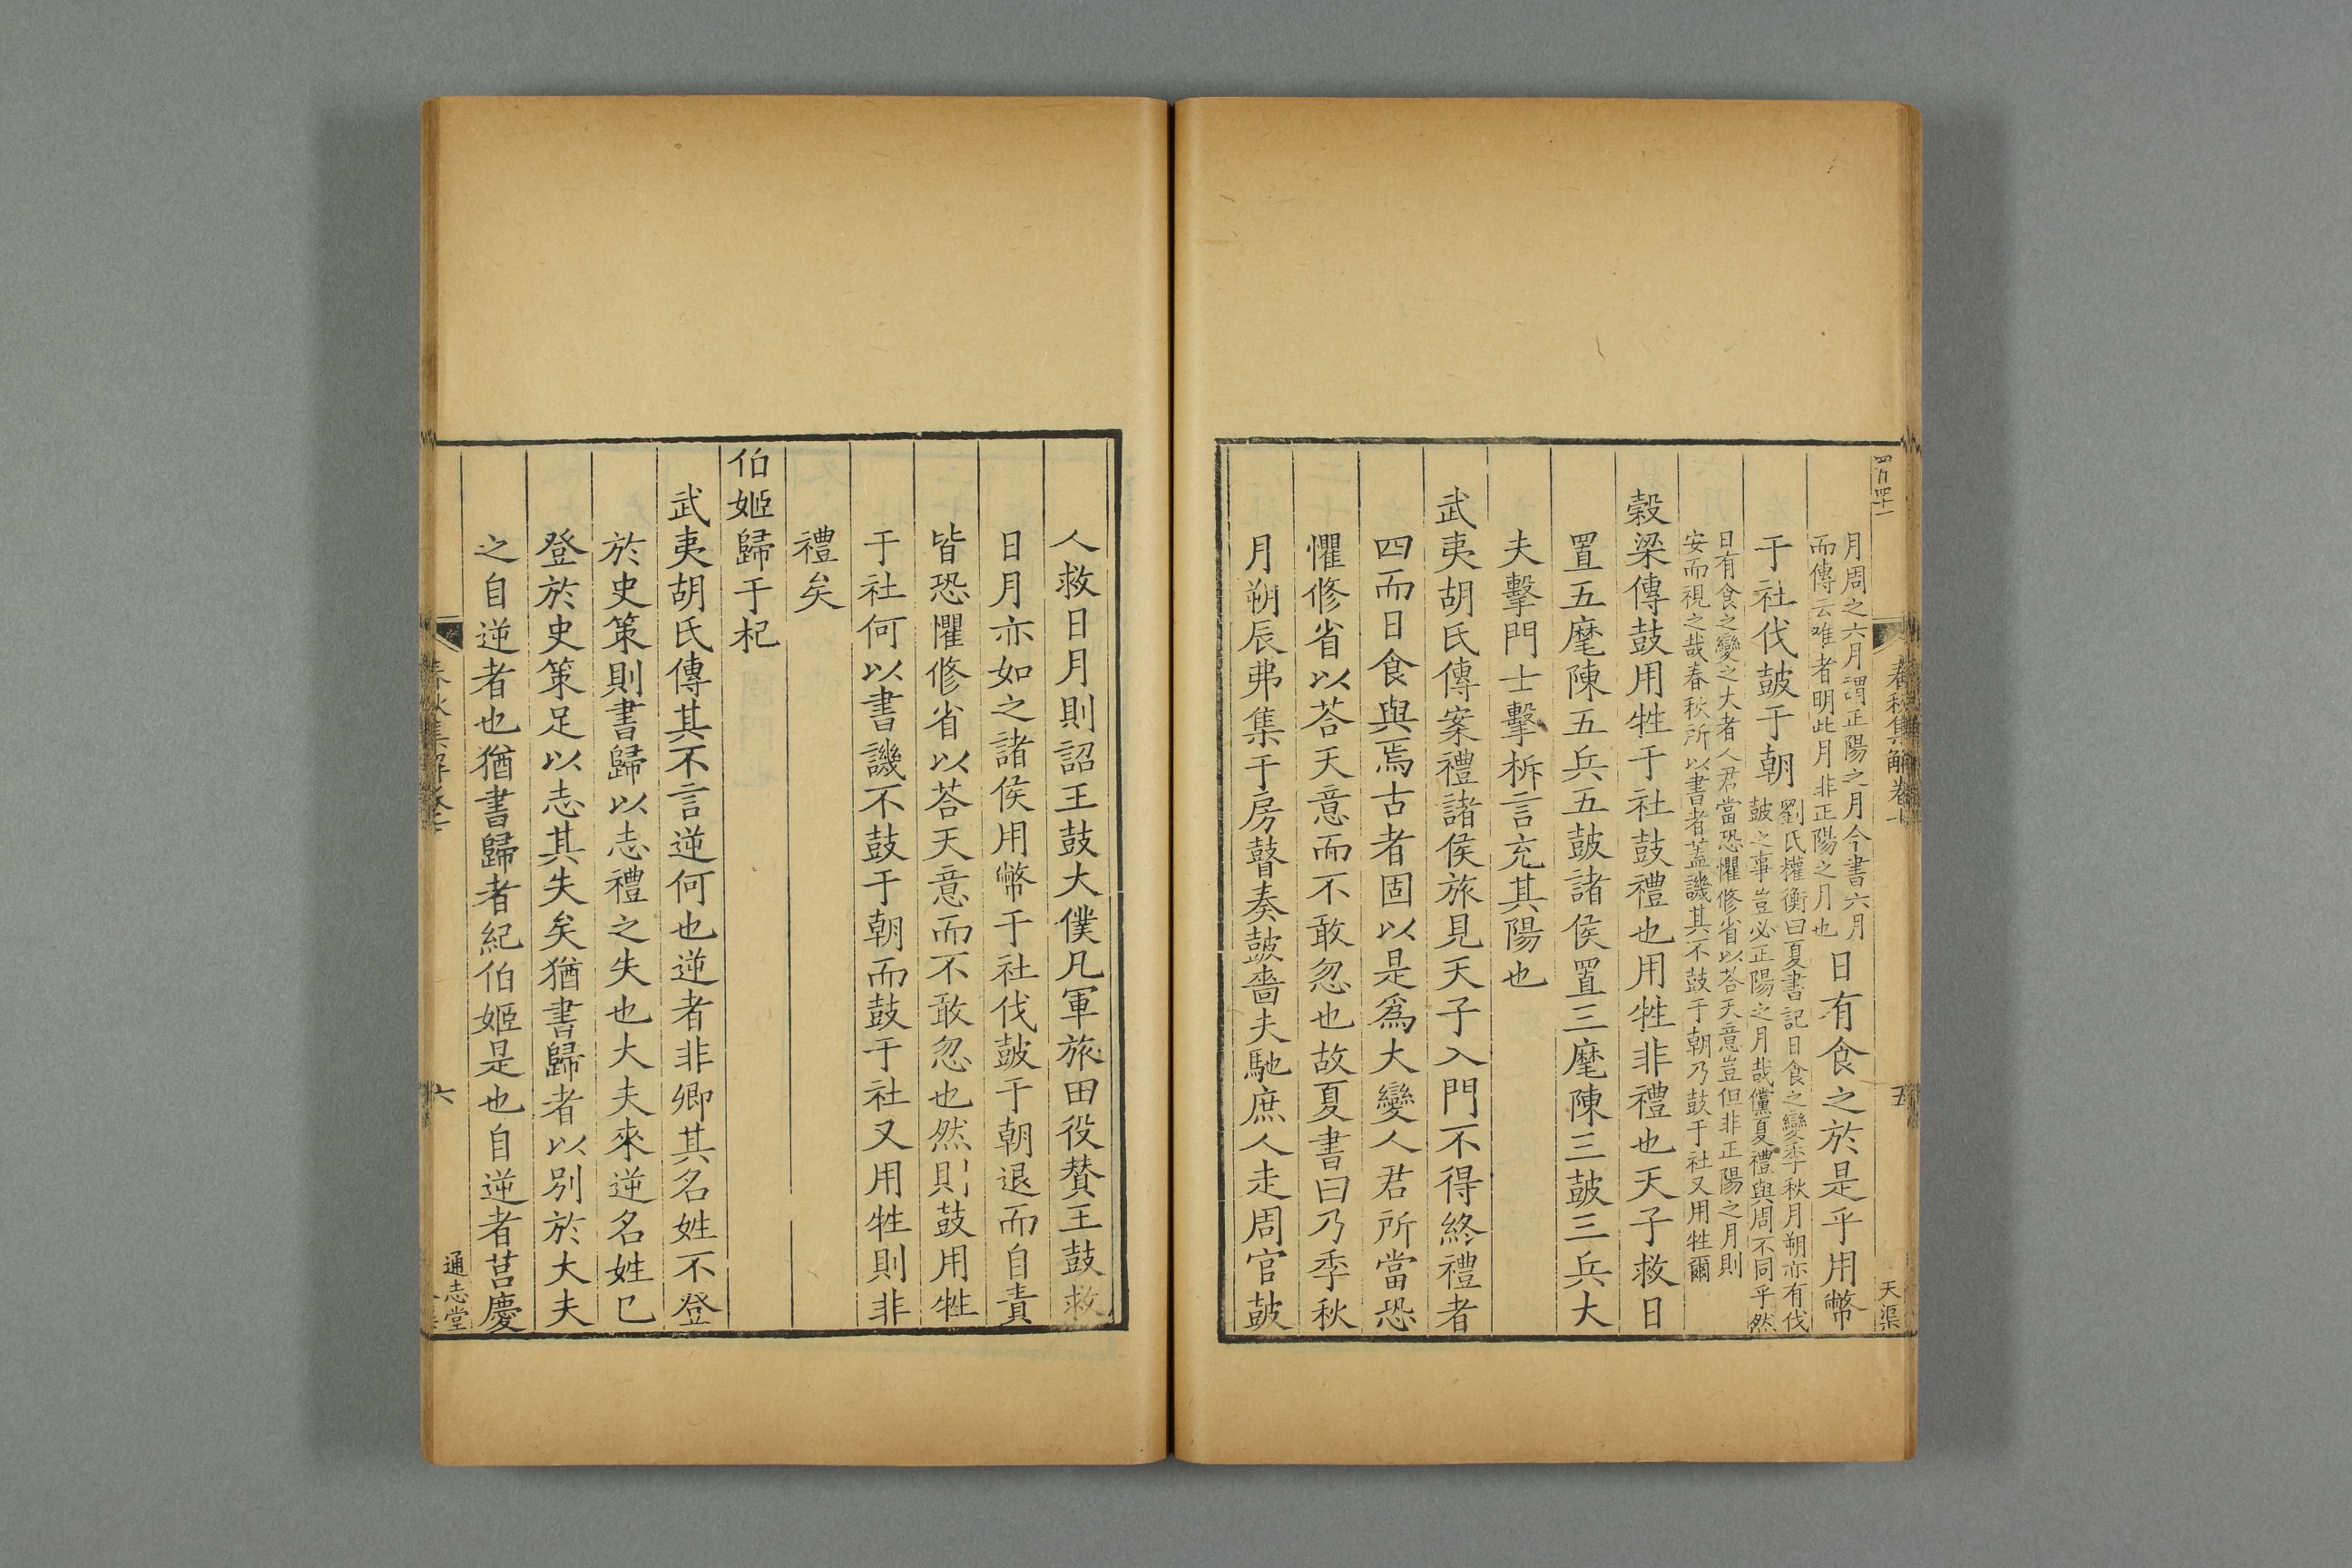 月周之六月謂正陽之月今書六月
而傳云唯者明此月非正陽之月也
日有食之於是乎用幣
于社伐皷于朝
劉氏權衡曰夏書記日食之變季秋月朔亦有伐
皷之事豈必正陽之月哉儻夏禮與周不同乎然
日有食之變之大者人君當恐懼修省以荅天意豈但非正陽之月則
安而視之哉春秋所以書者蓋譏其不鼓于朝乃鼓于社又用牲爾
榖梁傳鼓用牲于社鼓禮也用牲非禮也天子救日
置五麾陳五兵五皷諸侯置三麾陳三皷三兵大
夫擊門士擊柝言充其陽也
武夷胡氏傳案禮諸侯旅見天子入門不得終禮者
四而日食與焉古者固以是爲大變人君所當恐
懼修省以荅天意而不敢忽也故夏書曰乃季秋
月朔辰弗集于房瞽奏皷嗇夫馳庶人走周官皷
人救日月則詔王鼓大僕凡軍旅田役贊王鼓救
日月亦如之諸侯用幣于社伐皷于朝退而自責
皆恐懼修省以荅天意而不敢忽也然則鼓用牲
于社何以書譏不鼓于朝而鼓于社又用牲則非
禮矣
伯姬歸于杞
武夷胡氏傳其不言逆何也逆者非卿其名姓不登
於史策則書歸以志禮之失也大夫來逆名姓已
登於史策足以志其失矣猶書歸者以別於大夫
之自逆者也猶書歸者紀伯姬是也自逆者莒慶
春秋集解卷
五
天渠
六
通志堂